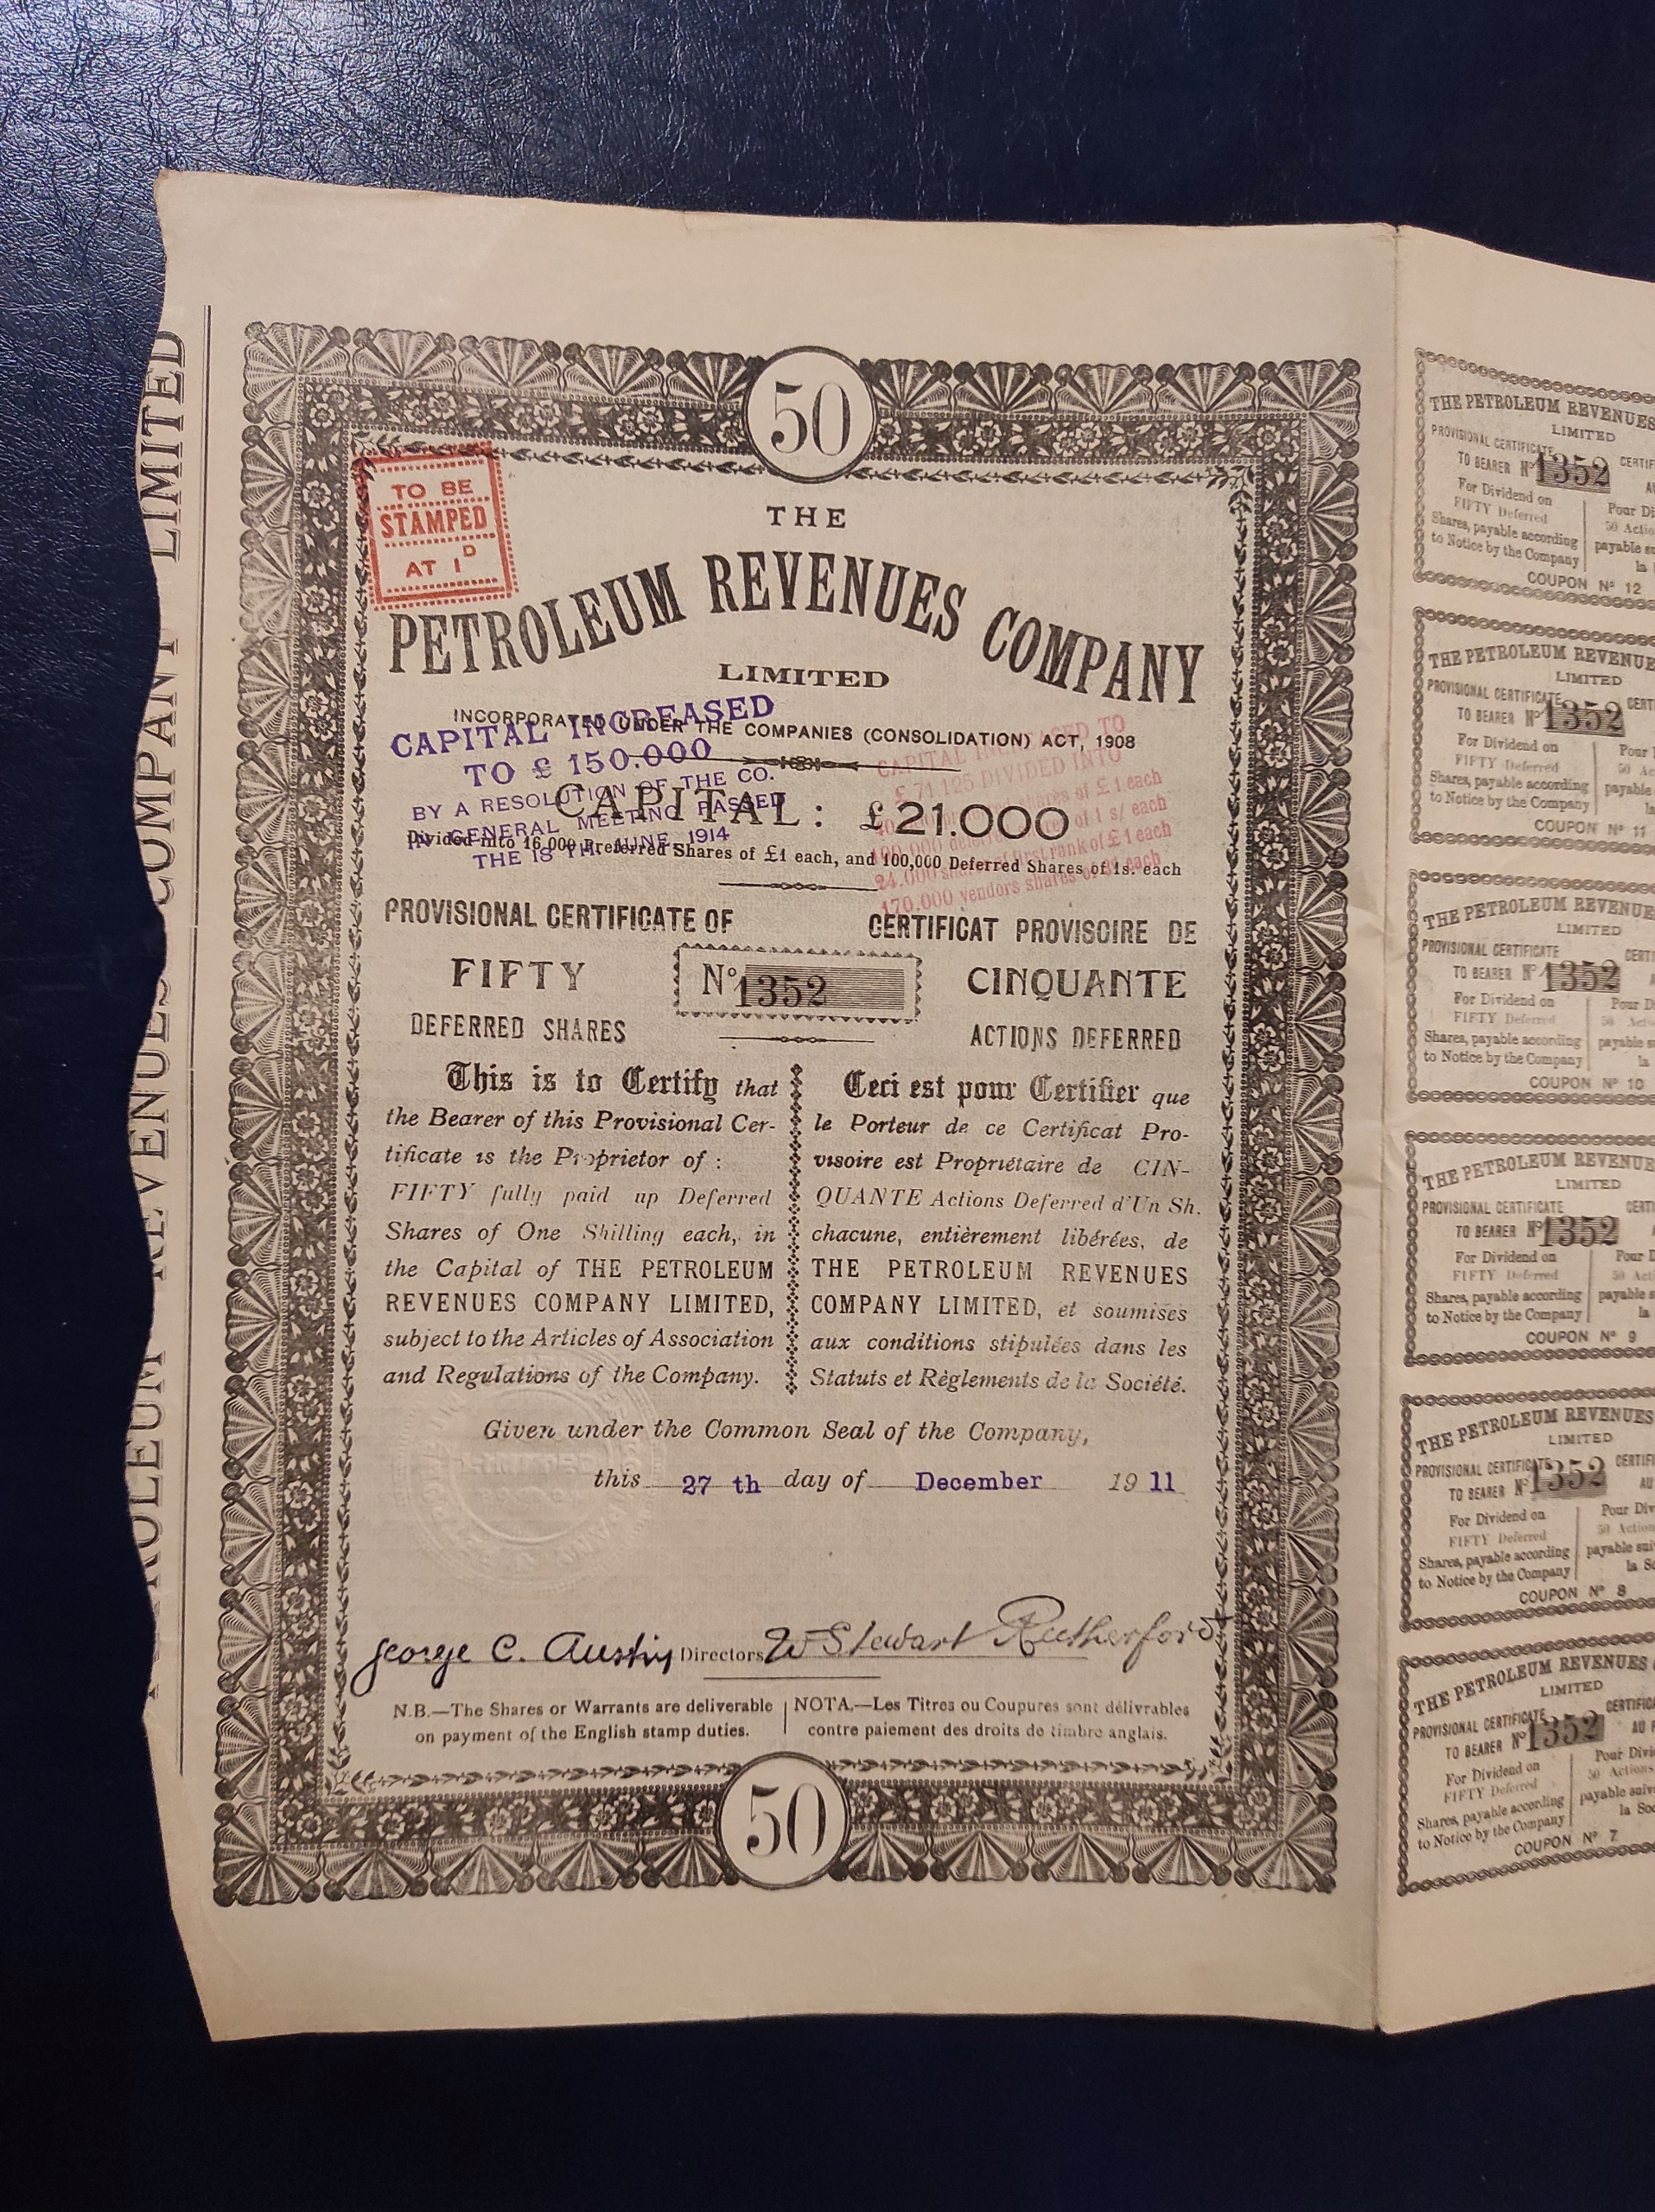 PETROLEUM REVENUES COMPANY LIMITED
50
TO BE
STAMPED
AT 1D
THE
PETROLEUM REVENUES COMPANY
LIMITED
INCORPORATED UNDER THE COMPANIES (CONSOLIDATION) ACT, 1908
CAPITAL INCREASED
TO £ 150.000
BY A RESOLUTION OF THE CO.
IN GENERAL MEETING PASSED
THE 18 TH. JUNE, 1914
CAPITAL INCREASED TO
£ 71.125 DIVIDED INTO
shares of £ 1 each
100.000 deferred shares of 1 s/ each
24.000 shares first rank of £ 1 each
170.000 vendors shares of each
CAPITAL: £21.000
Divided into 16,000 Preferred Shares of £1 each, and 100,000 Deferred Shares of 1s. each
PROVISIONAL CERTIFICATE OF
FIFTY
DEFERRED SHARES
No 1352
CERTIFICAT PROVISOIRE DE
CINQUANTE
ACTIONS DEFERRED
This is to Certify that
the Bearer of this Provisional Cer-
tificate is the Proprietor of :
FIFTY fully paid up Deferred
Shares of One Shilling each, in
the Capital of THE PETROLEUM
REVENUES COMPANY LIMITED,
subject to the Articles of Association
and Regulations of the Company.
Ceci est pour Certifier que
le Porteur de ce Certificat Pro-
visoire est Propriétaire de CIN-
QUANTE Actions Deferred d'Un Sh.
chacune, entièrement libérées, de
THE PETROLEUM REVENUES
COMPANY LIMITED, et soumises
aux conditions stipulées dans les
Statuts et Règlements de la Société.
Given under the Common Seal of the Company,
this 27 th day of December 1911
LIMITED
George C. Austin Directors W Stewart Rutherford
N.B.—The Shares or Warrants are deliverable
on payment of the English stamp duties.
NOTA.—Les Titres ou Coupures sont délivrables
contre paiement des droits de timbre anglais.
50
THE PETROLEUM REVENUES
LIMITED
PROVISIONAL CERTIFICATE
TO BEARER No 1352
For Dividend on
FIFTY Deferred
Shares, payable according
to Notice by the Company
COUPON No 12
THE PETROLEUM REVENUE
LIMITED
PROVISIONAL CERTIFICATE
TO BEARER No 1352
For Dividend on
FIFTY Deferred
Shares, payable according
to Notice by the Company
COUPON No 11
THE PETROLEUM REVENUE
LIMITED
PROVISIONAL CERTIFICATE
TO BEARER No 1352
For Dividend on
FIFTY Deferred
Shares, payable according
to Notice by the Company
COUPON No 10
THE PETROLEUM REVENUE
LIMITED
PROVISIONAL CERTIFICATE
TO BEARER No 1352
For Dividend on
FIFTY Deferred
Shares, payable according
to Notice by the Company
COUPON No 9
THE PETROLEUM REVENUES
LIMITED
PROVISIONAL CERTIFICATE
TO BEARER No 1352
For Dividend on
FIFTY Deferred
Shares, payable according
to Notice by the Company
COUPON No 8
THE PETROLEUM REVENUES
LIMITED
PROVISIONAL CERTIFICATE
TO BEARER No 1352
For Dividend on
FIFTY Deferred
Shares, payable according
to Notice by the Company
COUPON No 7